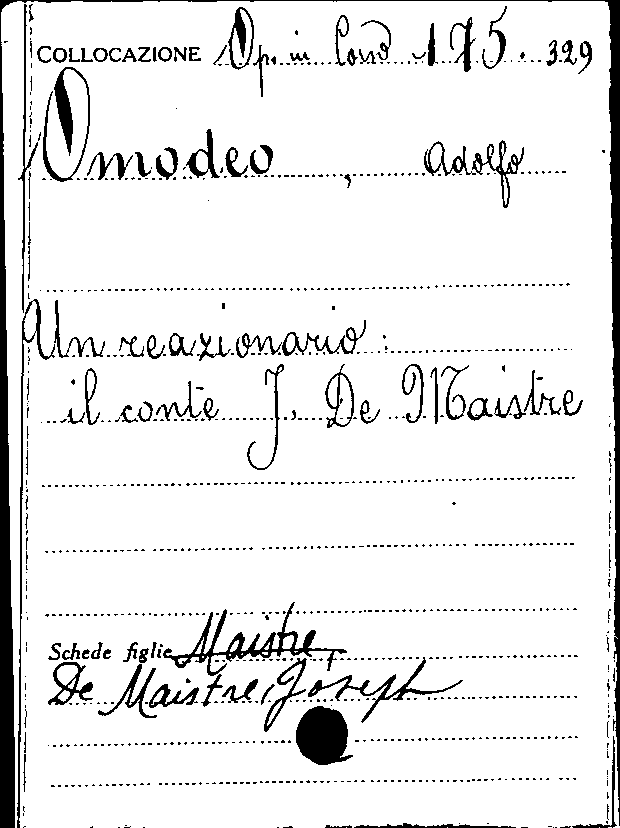 COLLOCAZIONE Op. in Corso 175. 329
Omodeo, Adolfo
Un reazionario:
il conte J. De Maistre
Schede figlie Maistre,
De Maistre, Joseph